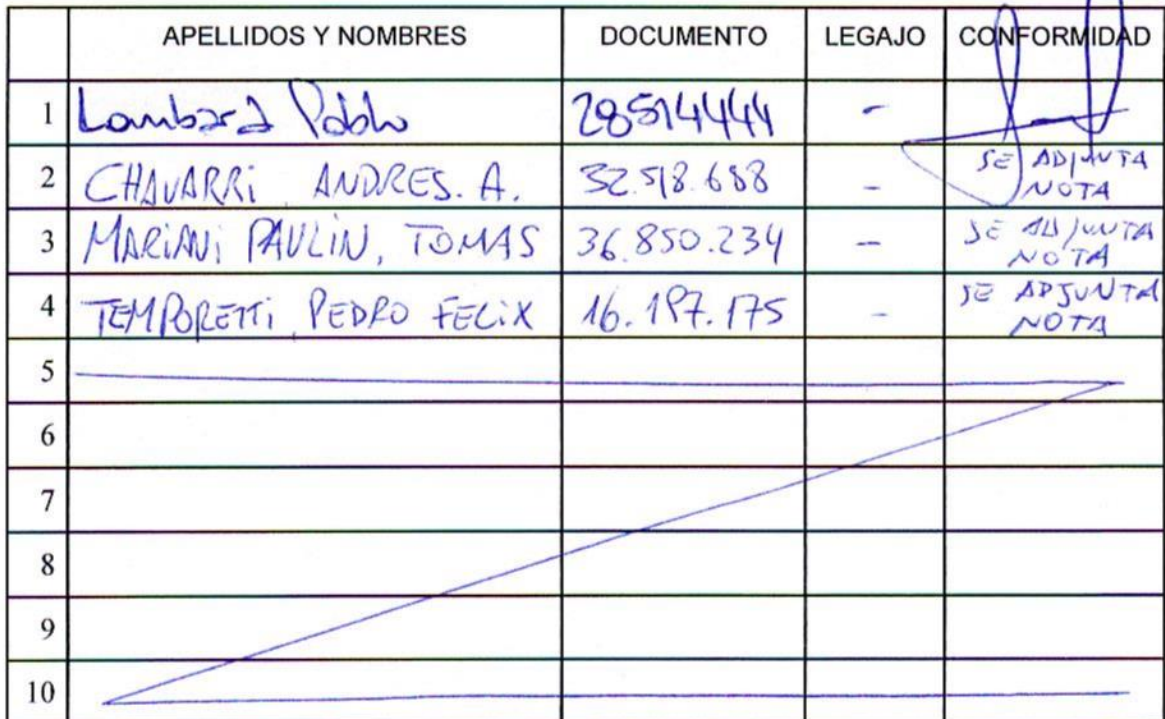 APELLIDOS Y NOMBRES DOCUMENTO LEGAJO CONFORMIDAD
1 Lombard Pablo 28514444 -
2 CHAVARRI ANDRES. A. 32.518.688 - SE ADJUNTA NOTA
3 MARIANI PAULIN, TOMAS 36.850.234 - SE ADJUNTA NOTA
4 TEMPORETTI, PEDRO FELIX 16.197.175 - SE ADJUNTA NOTA
5
6
7
8
9
10